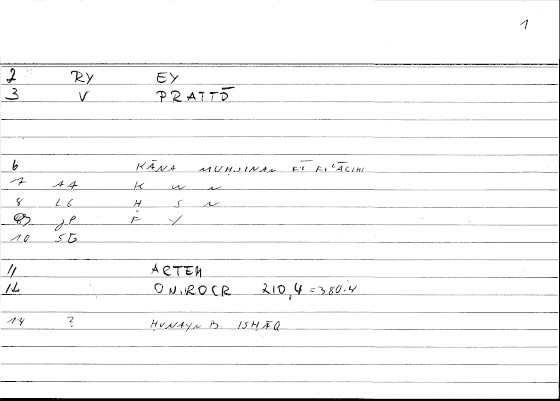 1
2 RY EY
3 V PRATTŌ
6 KĀNA MUḤSINAN FĪ FIʿĀLIHI
7 AA K W N
8 LC Ḥ S N
9 JP F ʿ L
10 SG
11 ARTEM
12 ONIROCR 210,4 = 380.4
14 ? ḤUNAYN B. ISḤĀQ